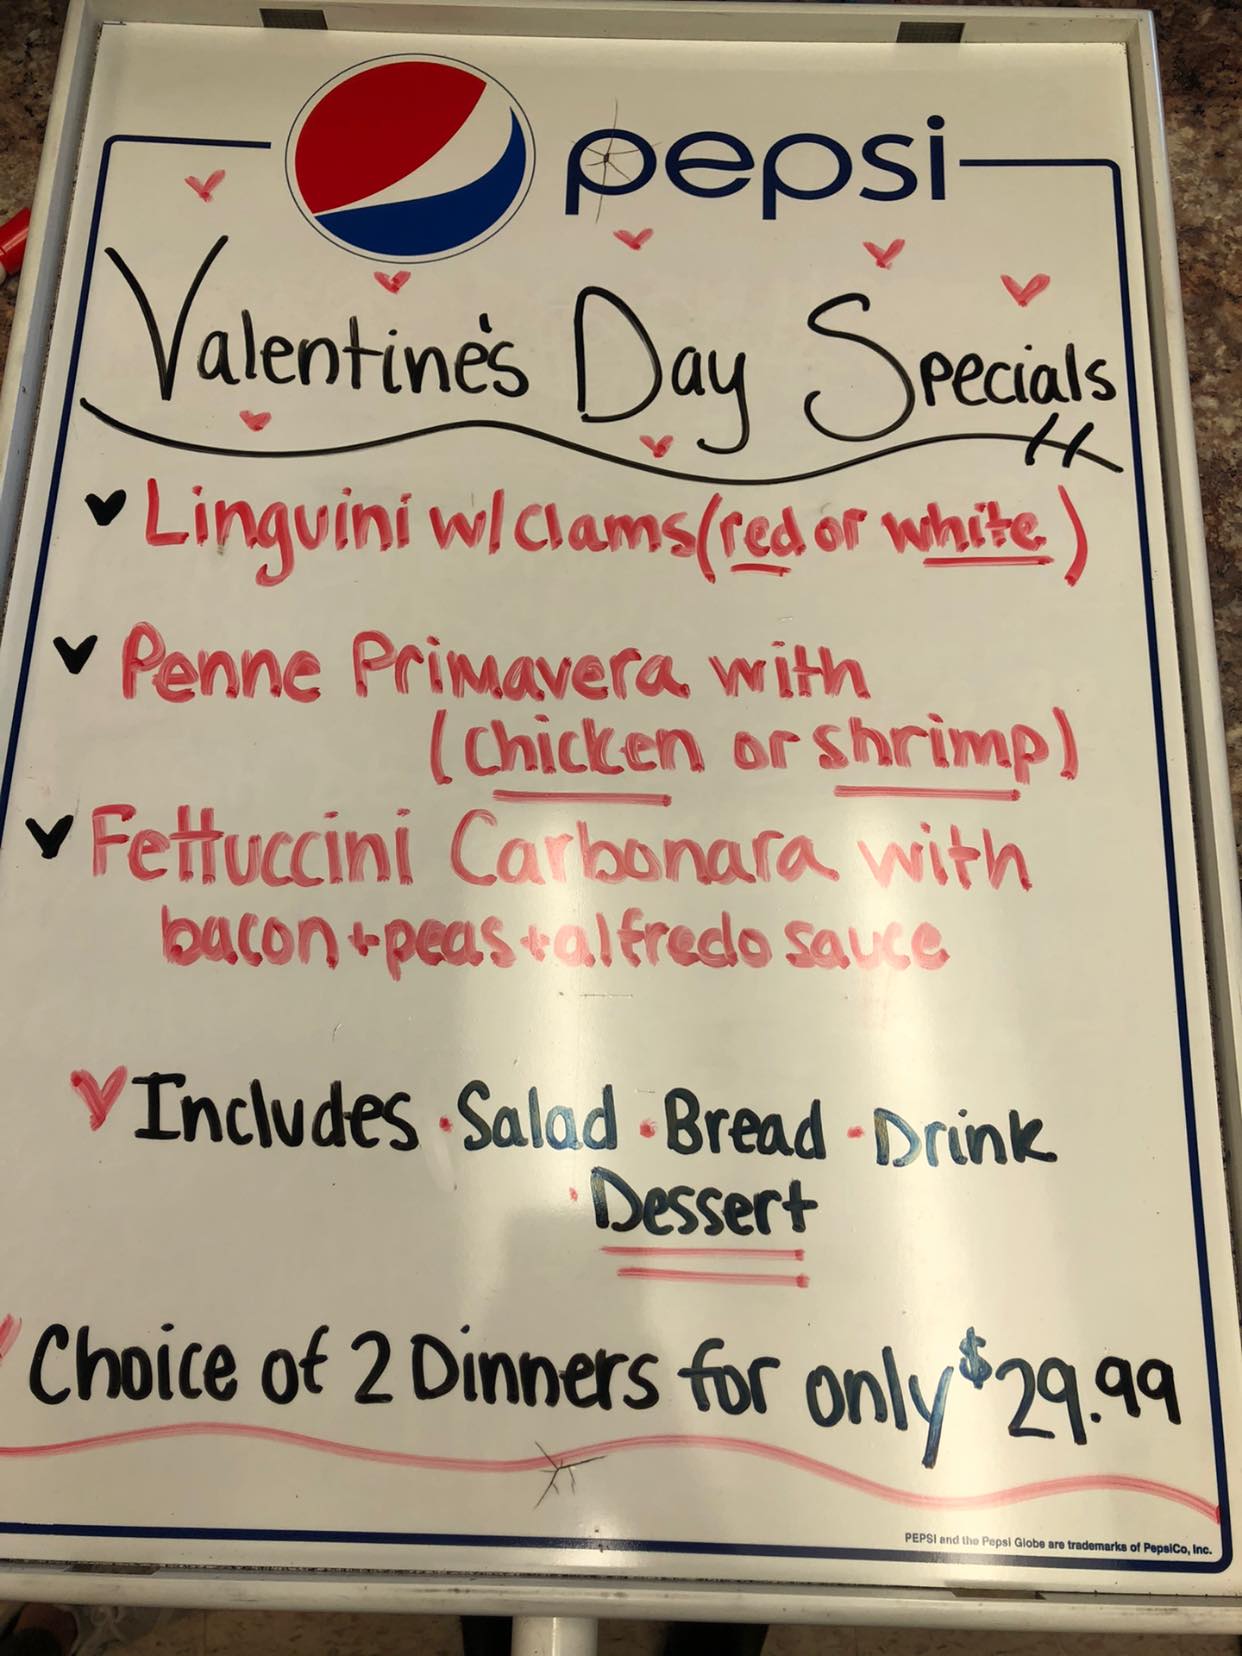 pepsi
Valentine's Day Specials
Linguini w/clams (red or white)
Penne Primavera with
(chicken or shrimp)
Fettuccini Carbonara with
bacon + peas + alfredo sauce
Includes · Salad · Bread · Drink
· Dessert
Choice of 2 Dinners for only $29.99
PEPSI and the Pepsi Globe are trademarks of PepsiCo, Inc.